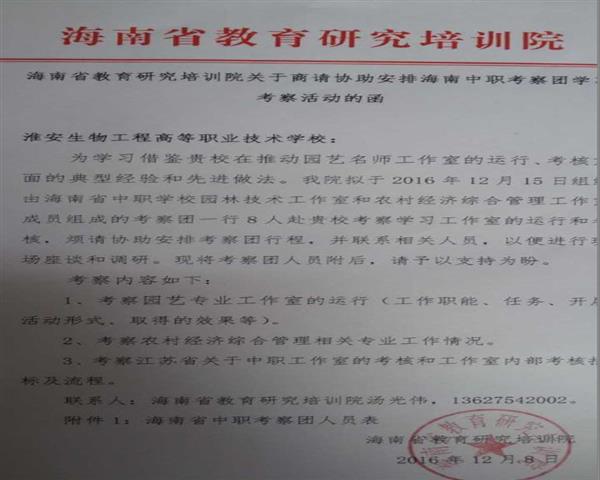 海南省教育研究培训院
海南省教育研究培训院关于商请协助安排海南中职考察团学
考察活动的函
淮安生物工程高等职业技术学校：
为学习借鉴贵校在推动园艺名师工作室的运行、考核
面的典型经验和先进做法。我院拟于 2016 年 12 月 15 日组
由海南省中职学校园林技术工作室和农村经济综合管理工作
成员组成的考察团一行 8 人赴贵校考察学习工作室的运行和
核，烦请协助安排考察团行程，并联系相关人员，以便进行
场座谈和调研。现将考察团人员附后，请予以支持为盼。
考察内容如下：
1、考察园艺专业工作室的运行（工作职能、任务、开
活动形式、取得的效果等）。
2、考察农村经济综合管理相关专业工作情况。
3、考察江苏省关于中职工作室的考核和工作室内部考核
标及流程。
联系人：海南省教育研究培训院汤光伟，13627542002。
附件 1：海南省中职考察团人员表
海南省教育研究培训院
2016 年 12 月 8 日